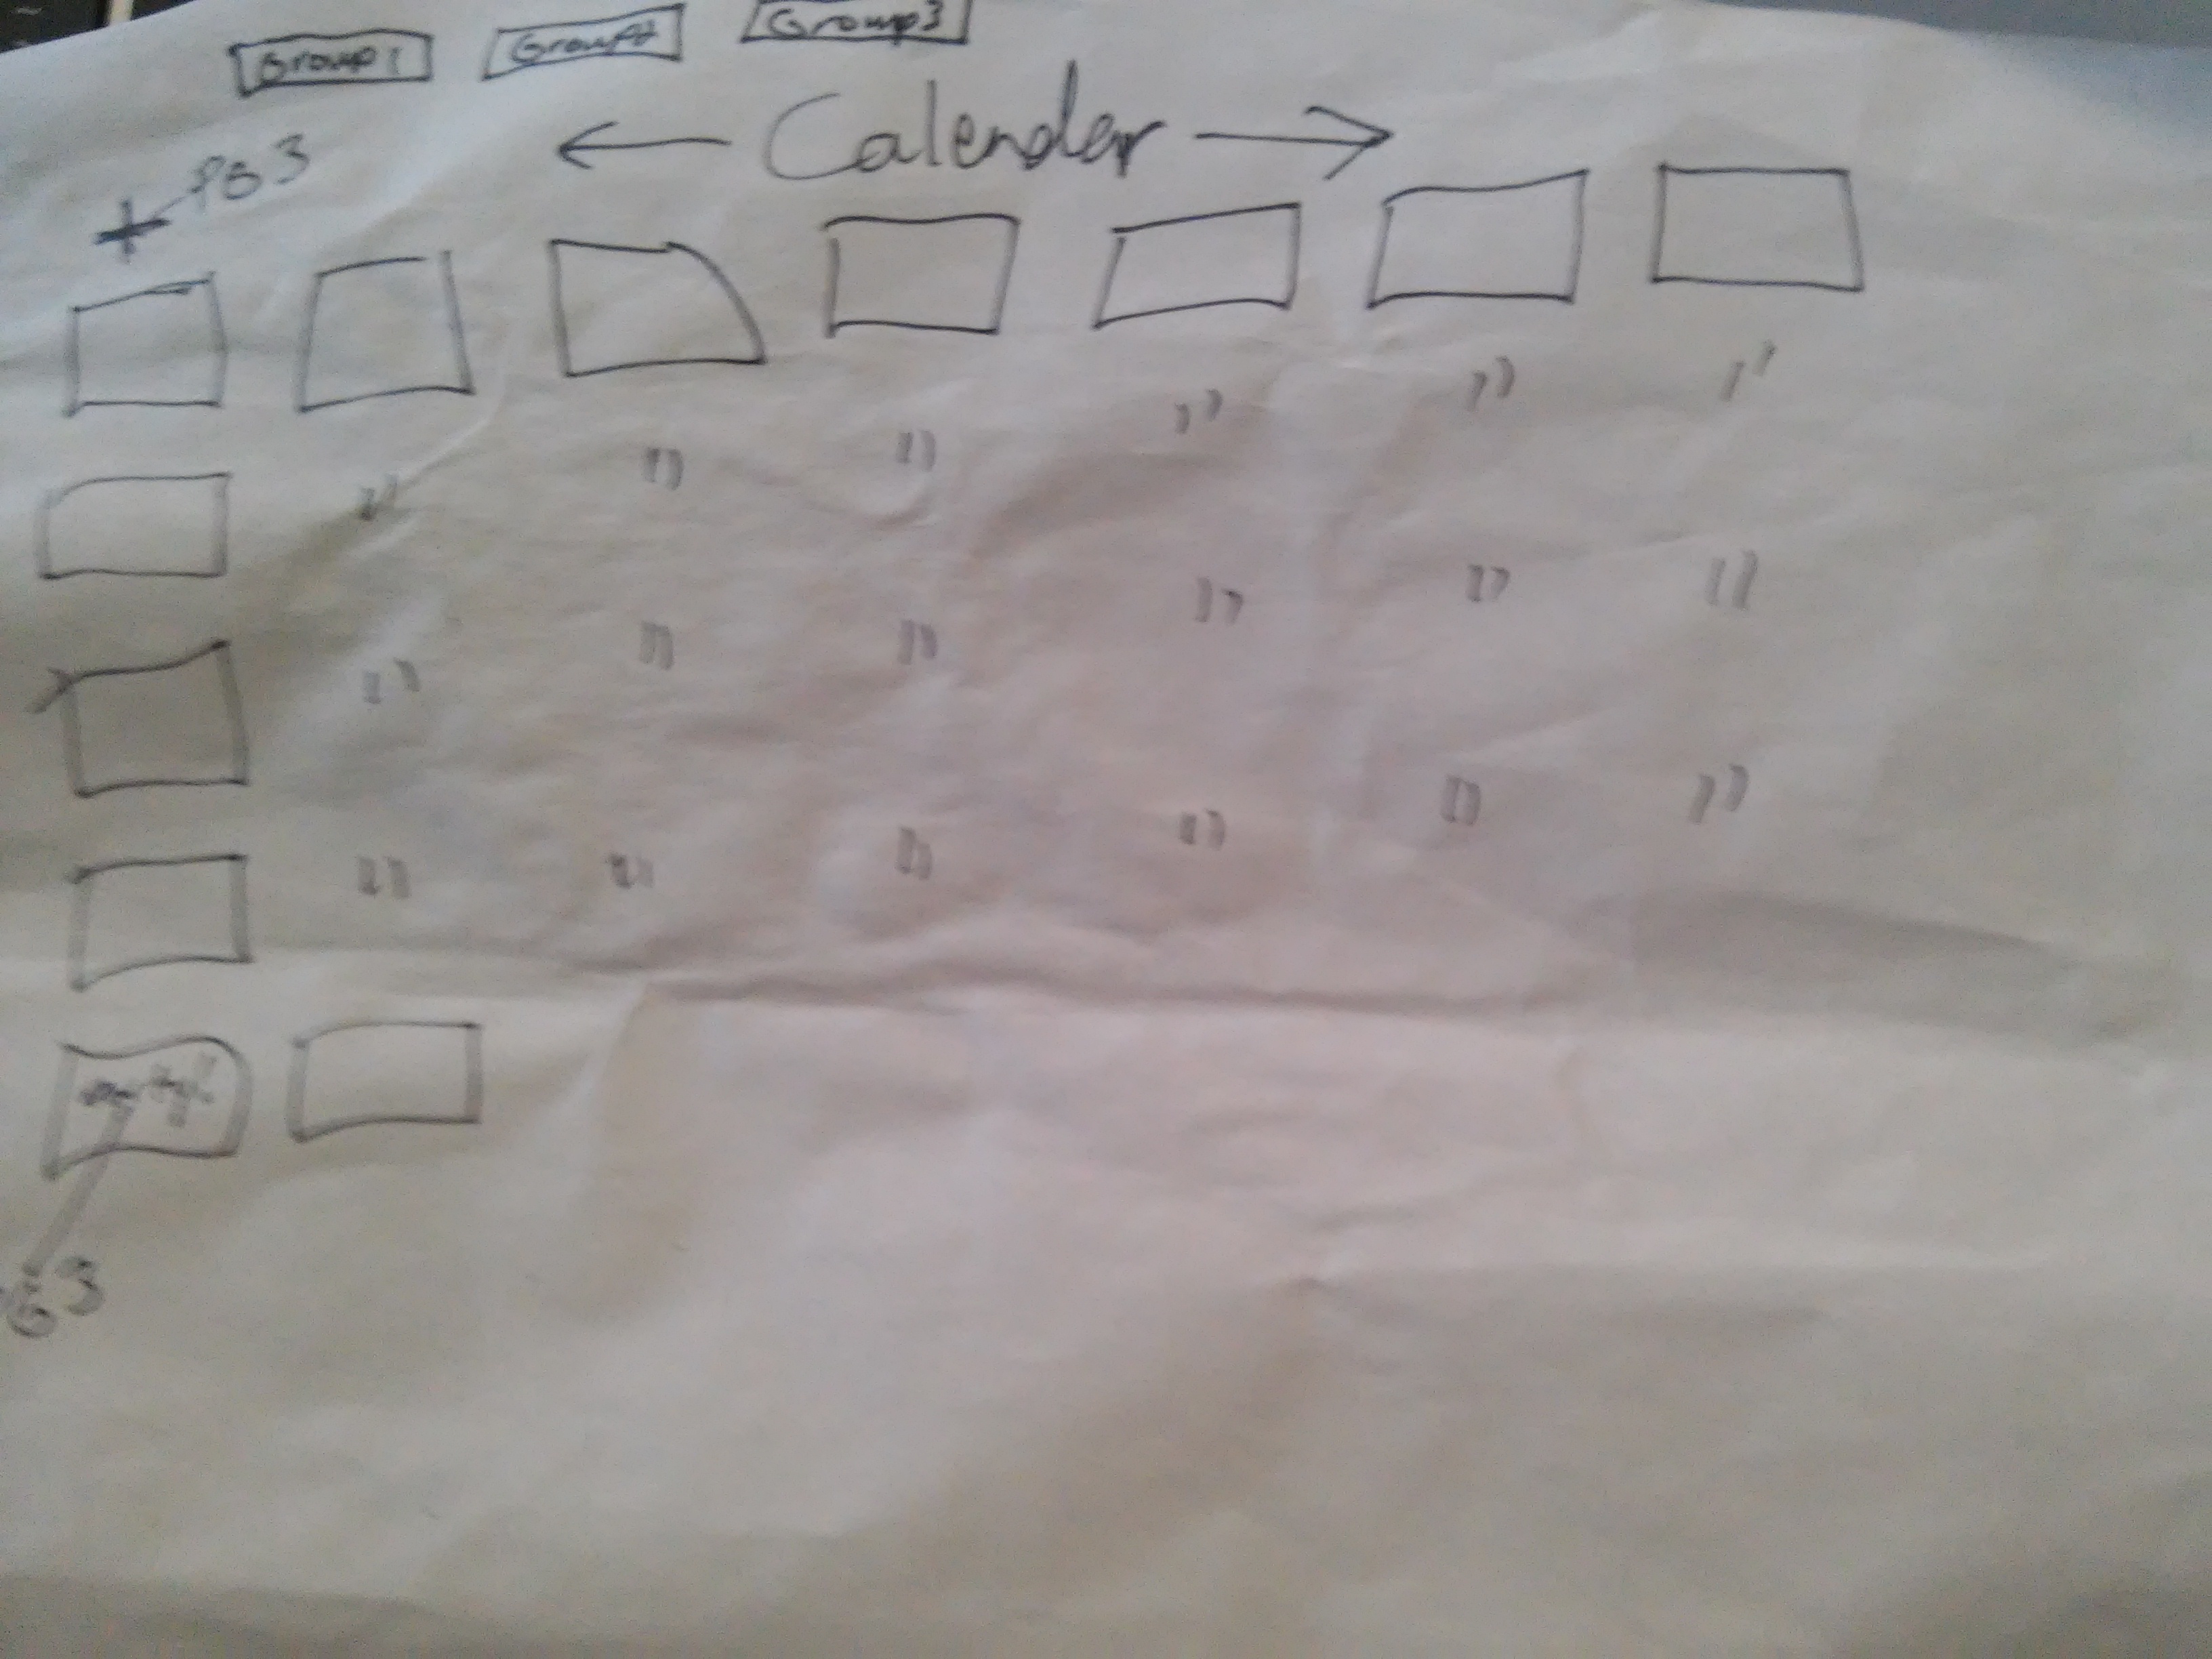 Group1 Group2 Group3
← Calendar →
+ PG 3
" " " " " "
" " " " " "
" " " " " "
G 3